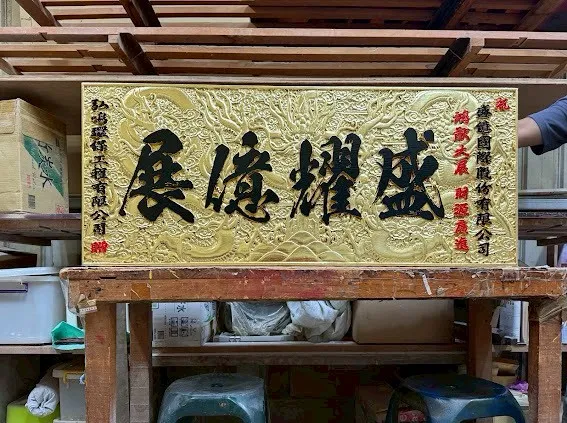 賀
盛億國際股份有限公司
鴻猷大展 財源廣進
盛耀億展
弘鳴環保工程有限公司 贈